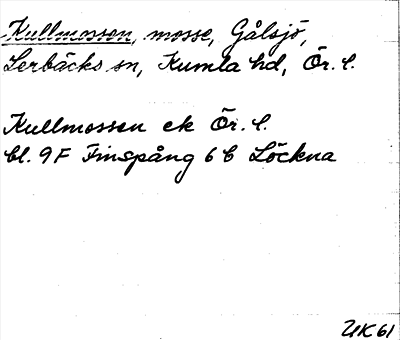 Kullmossen, mosse, Gålsjö,
Lerbäcks sn, Kumla hd, Ör. l.
Kullmossen ek Ör. l.
bl. 9F Finspång 6 b Löckna
UK61